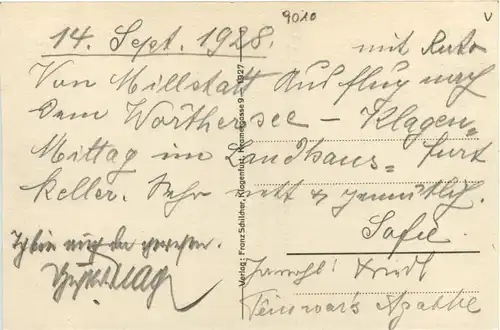 9010
V
14. Sept. 1928.
mit Auto
Von Millstatt Ausflug nach
dem Wörthersee – Klagen=
Mittag im Landhaus= furt
keller. Sehr nett & gemütlich.
Sofie
Ich bin auch da gewesen.
Jawohl!
Verlag: Franz Schilcher, Klagenfurt, Heumargasse 9 1927